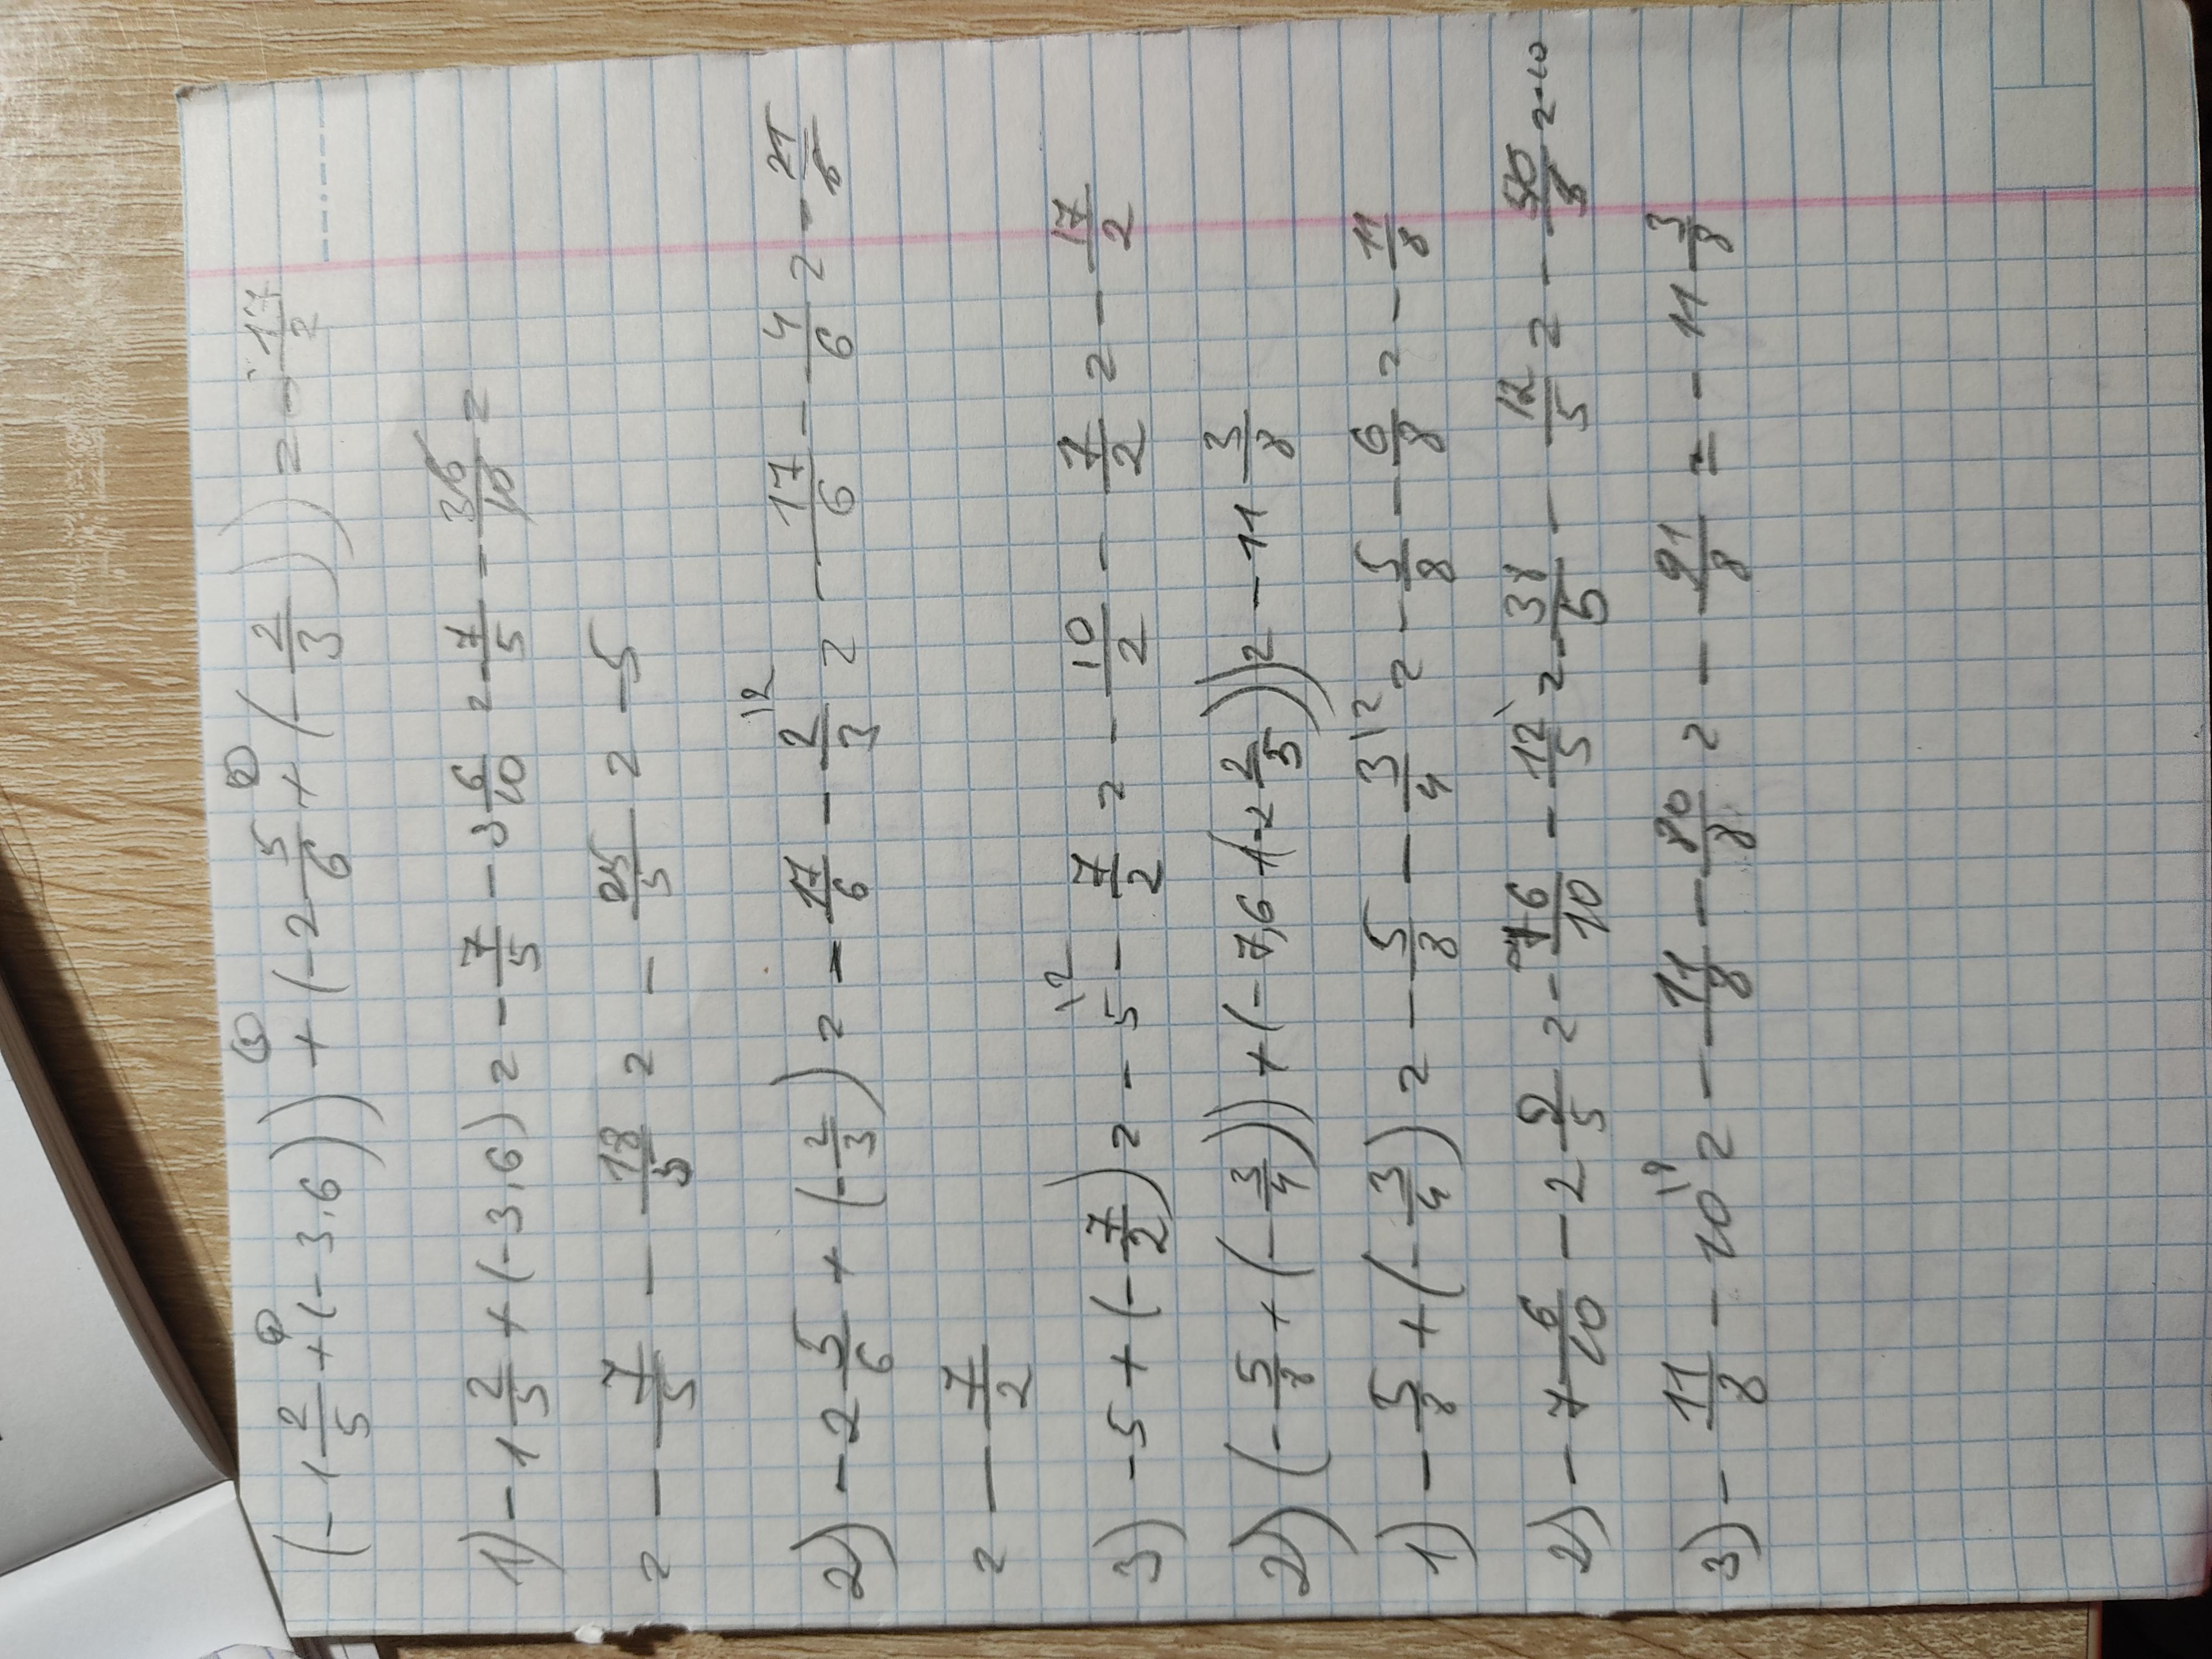 (-1 2/5 + (-3,6)) + (-2 5/6 + (-2/3)) = -17/2
1) -1 2/5 + (-3,6) = -7/5 - 3 6/10 = -7/5 - 36/10 =
= -7/5 - 18/5 = -25/5 = -5
2) -2 5/6 + (-2/3) = -17/6 - 2/3 \2 = -17/6 - 4/6 = -21/6
= -7/2
3) -5 + (-7/2) = -5 \2 - 7/2 = -10/2 - 7/2 = -17/2
2) (-5/8 + (-3/4)) + (-7,6 + (-2 2/5)) = -11 3/8
1) -5/8 + (-3/4) = -5/8 - 3/4 \2 = -5/8 - 6/8 = -11/8
2) -7 6/10 - 2 2/5 = -76/10 - 12/5 = -38/5 - 12/5 = -50/5 = -10
3) -11/8 - 10 = -11/8 - 80/8 = -91/8 = -11 3/8